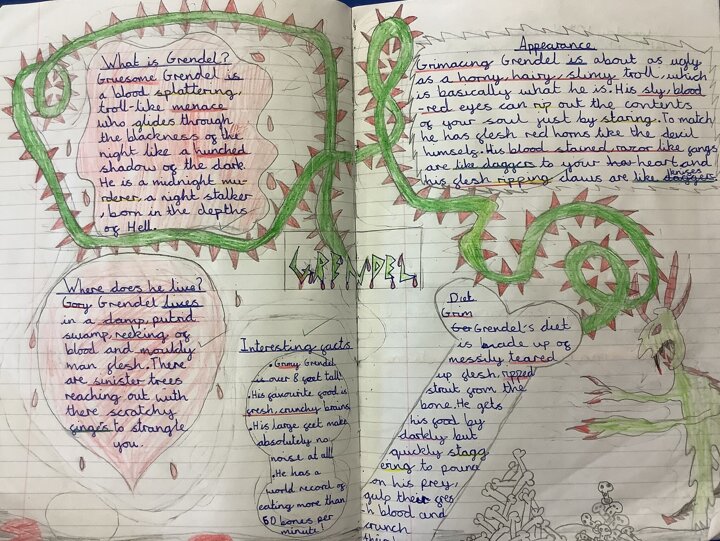 What is Grendel?
Gruesome Grendel is
a blood splattering,
troll-like menace
who glides through
the blackness of the
night like a hunched
shadow of the dark.
He is a midnight mu-
rderer, a night stalker
, born in the depths
of Hell.
Where does he live?
Gory Grendel lives
in a damp, putrid
swamp, reeking of
blood and mouldy
man flesh. There
are sinister trees
reaching out with
there scratchy
fingers to strangle
you.
Interesting facts
• Grimy Grendel
is over 8 feet tall!
• His favourite food is
fresh, crunchy brains
• His large feet make
absolutely no
noise at all
• He has a
world record of
eating more than
50 bones per
minute!
GRENDEL
Appearance
Grimacing Grendel is about as ugly
as a horny, hairy, slimy troll, which
is basically what he is. His sly, blood
-red eyes can rip out the contents
of your soul just by staring. To match
he has flesh red horns like the devil
himself. His blood stained, razor like fangs
are like daggers to your heart and
his flesh ripping claws are like knives
daggers.
Diet
Grim
Grendel's diet
is made up of
messily teared
up flesh, ripped
strait from the
bone. He gets
his food by
darkly but
quickly stagg
ering to pounce
on his prey,
gulp their fres
-h blood and
crunch